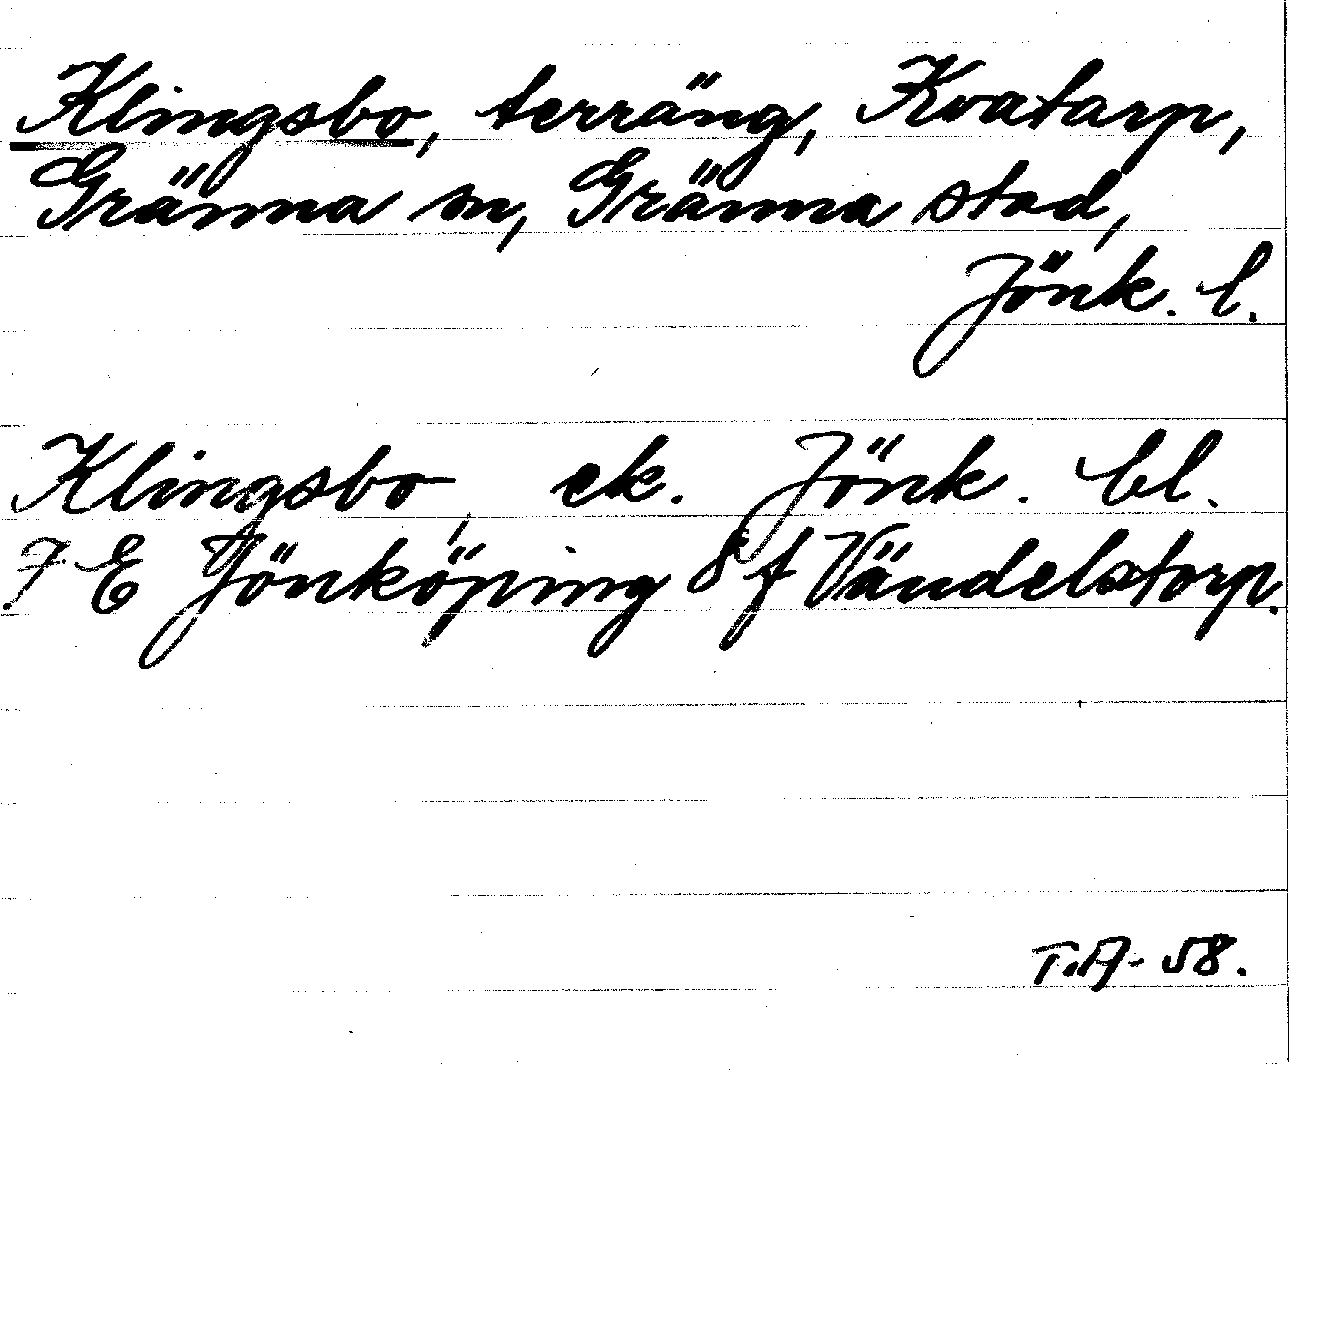 Klingsbo, terräng, Kvatarp,
Gränna sn, Gränna stad,
Jönk. l.
Klingsbo, ek. Jönk. bl.
7 E Jönköping 8 f Vändelstorp.
T.A- 58.